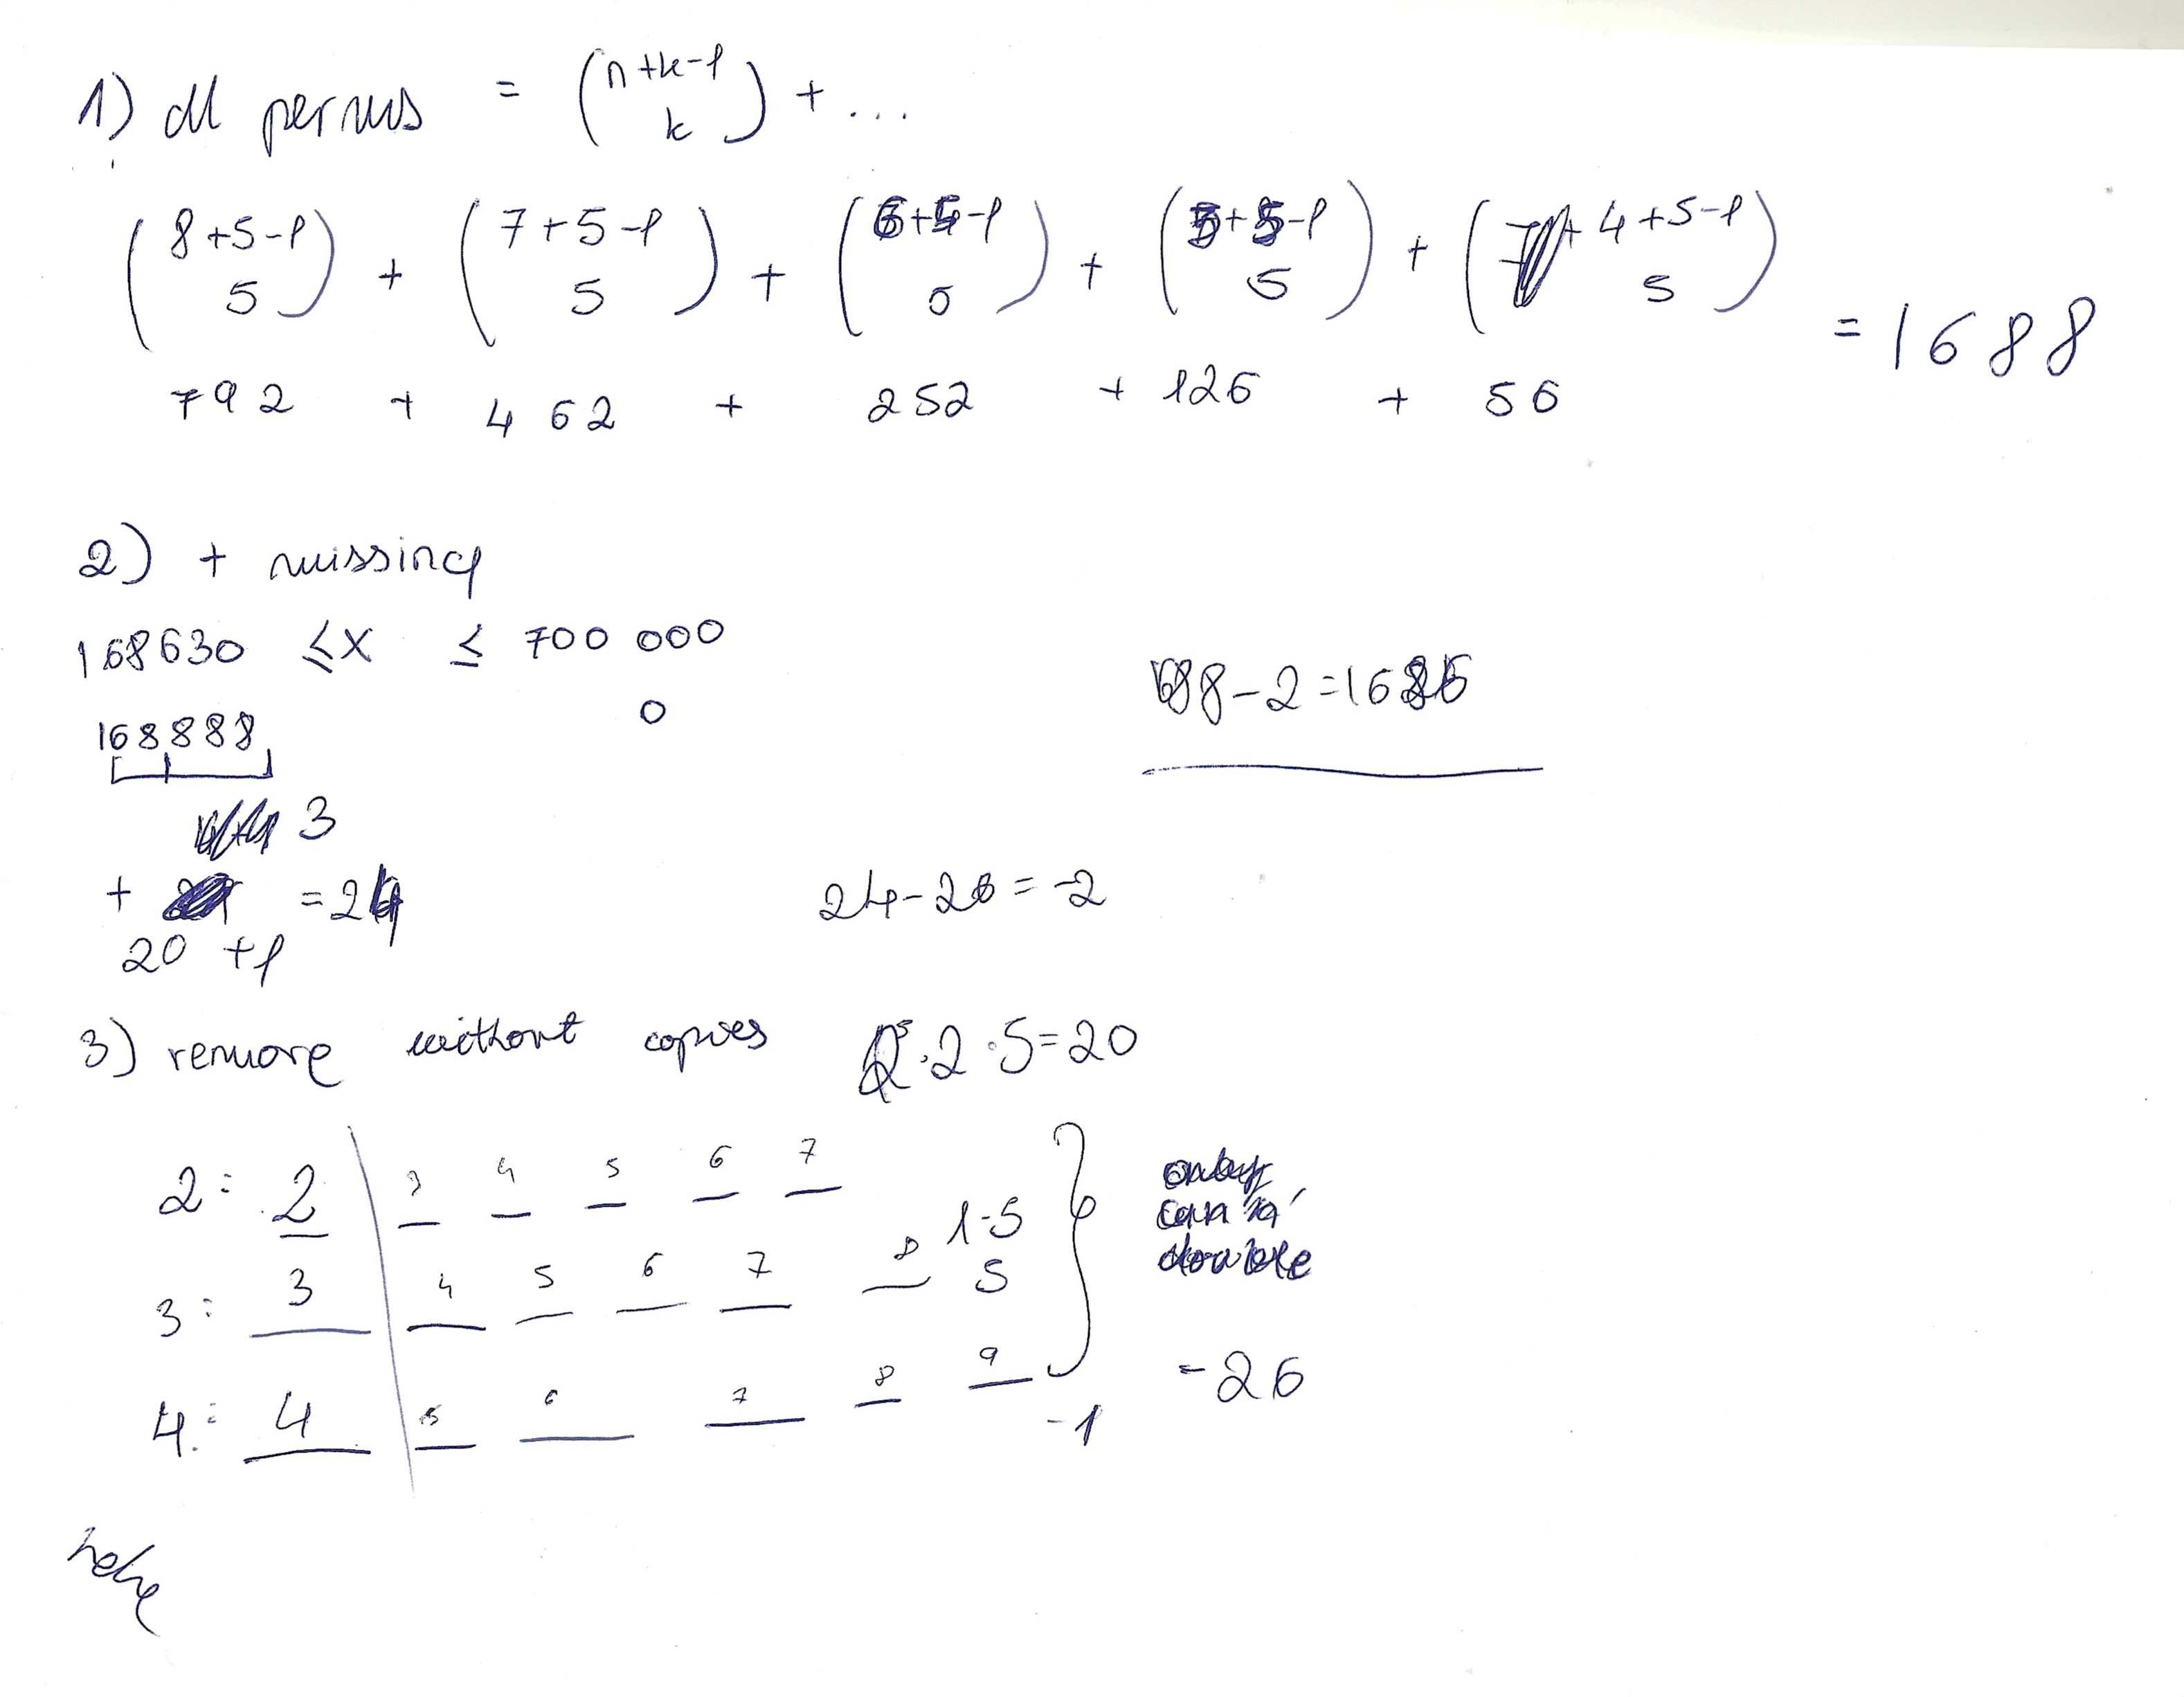 1) all perms = (n+k-1 k) + ...
(8+5-1 5) + (7+5-1 5) + (6+5-1 5) + (5+5-1 5) + (4+5-1 5)
= 1688
792 + 462 + 252 + 126 + 56
2) + missing
168630 ≤ x ≤ 700 000
0
168888
1688-2=1686
3
+ = 24
20 +1
24-26=-2
3) remove without copies 2·5=20
2: 2 | 3 4 5 6 7
1-5
3: 3 | 4 5 6 7 8 5
4: 4 | 5 6 7 8 9
-1
only
can be
double
-26